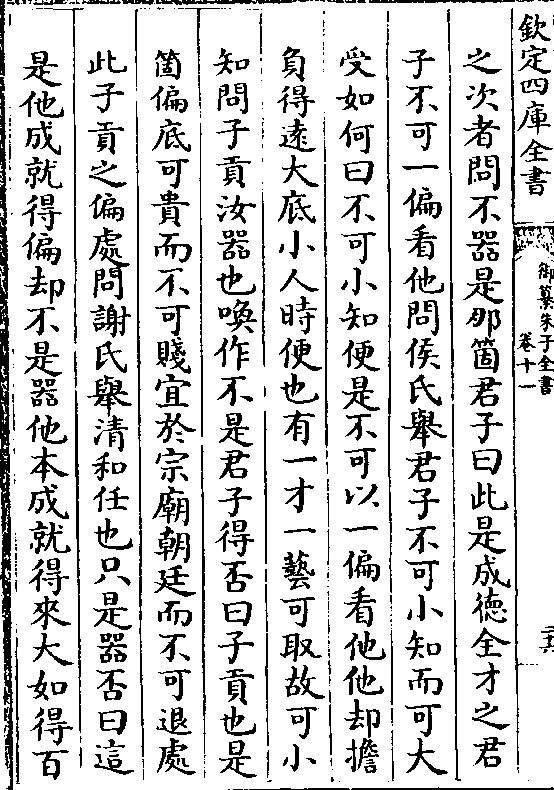 欽定四庫全書
御纂朱子全書
卷十一
之次者問不器是那箇君子曰此是成德全才之君
子不可一偏看他問侯氏舉君子不可小知而可大
受如何曰不可小知便是不可以一偏看他他却擔
負得逺大底小人時便也有一才一藝可取故可小
知問子貢汝器也喚作不是君子得否曰子貢也是
箇偏底可貴而不可賤宜於宗廟朝廷而不可退處
此子貢之偏處問謝氏舉清和任也只是器否曰這
是他成就得偏却不是器他本成就得來大如得百